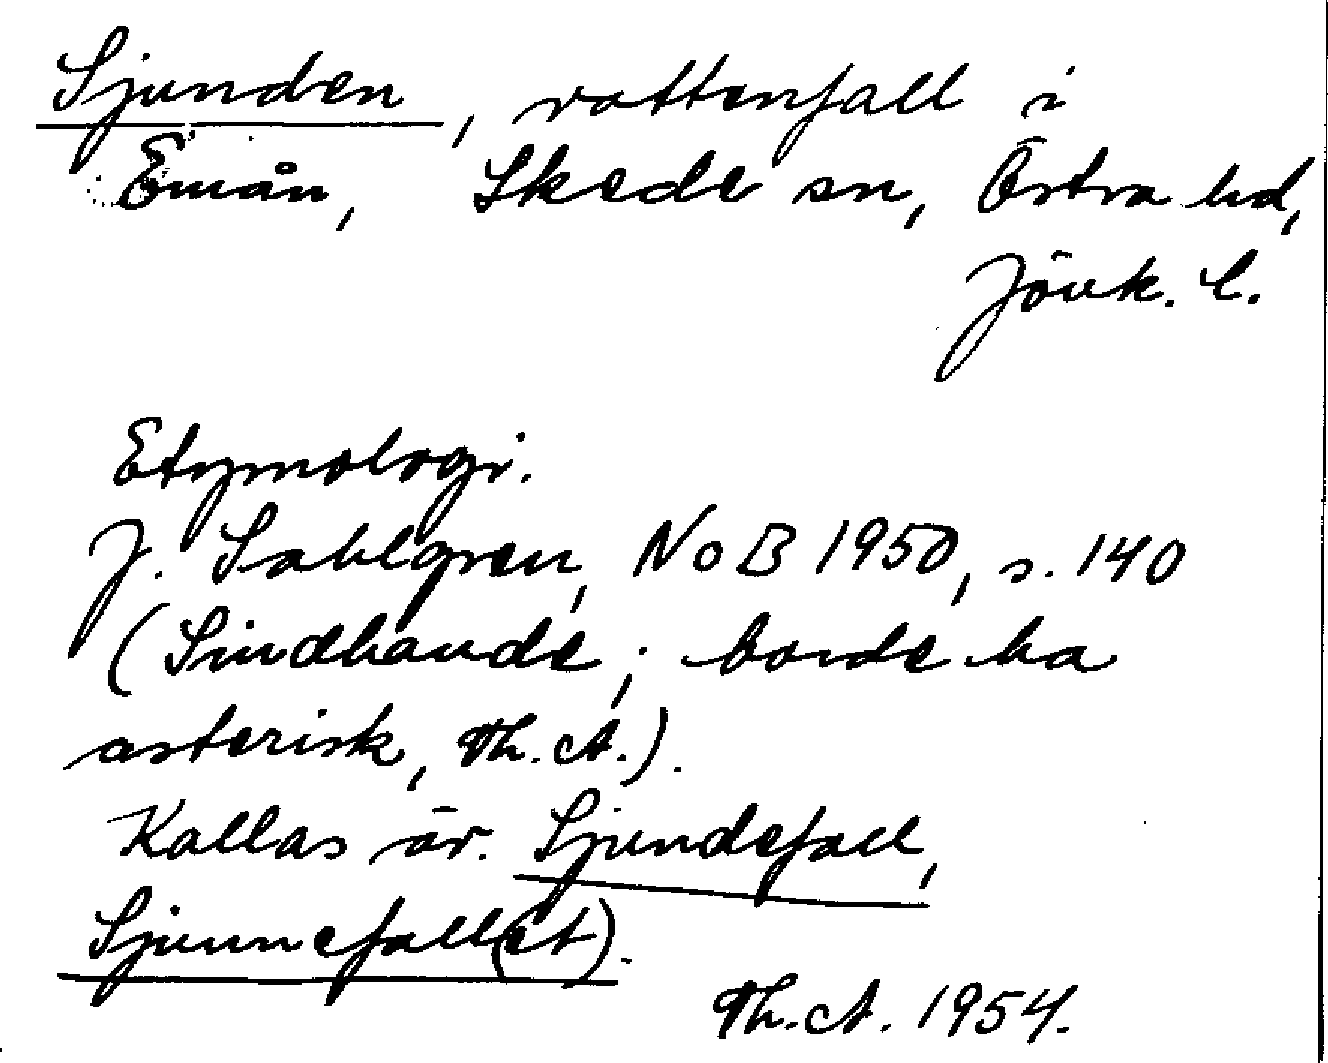 Sjunden, vattenfall i
Emån, Skede sn, Östra hd,
Jönk. l.
Etymologi.
J. Sahlgren, NoB 1950, s. 140
(Sindhande; borde ha
asterisk, Th. A.).
Kallas äv. Sjundefall,
Sjunnefall(et).
Th. A. 1954.